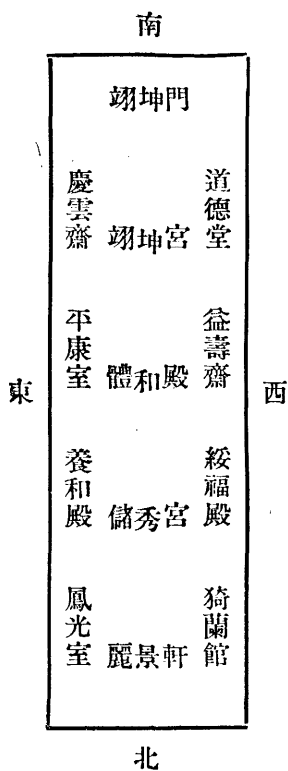 南
翊坤門
慶雲齋
翊坤宮
道德堂
平康室
體和殿
益壽齋
東
西
養和殿
儲秀宮
綏福殿
鳳光室
麗景軒
猗蘭館
北